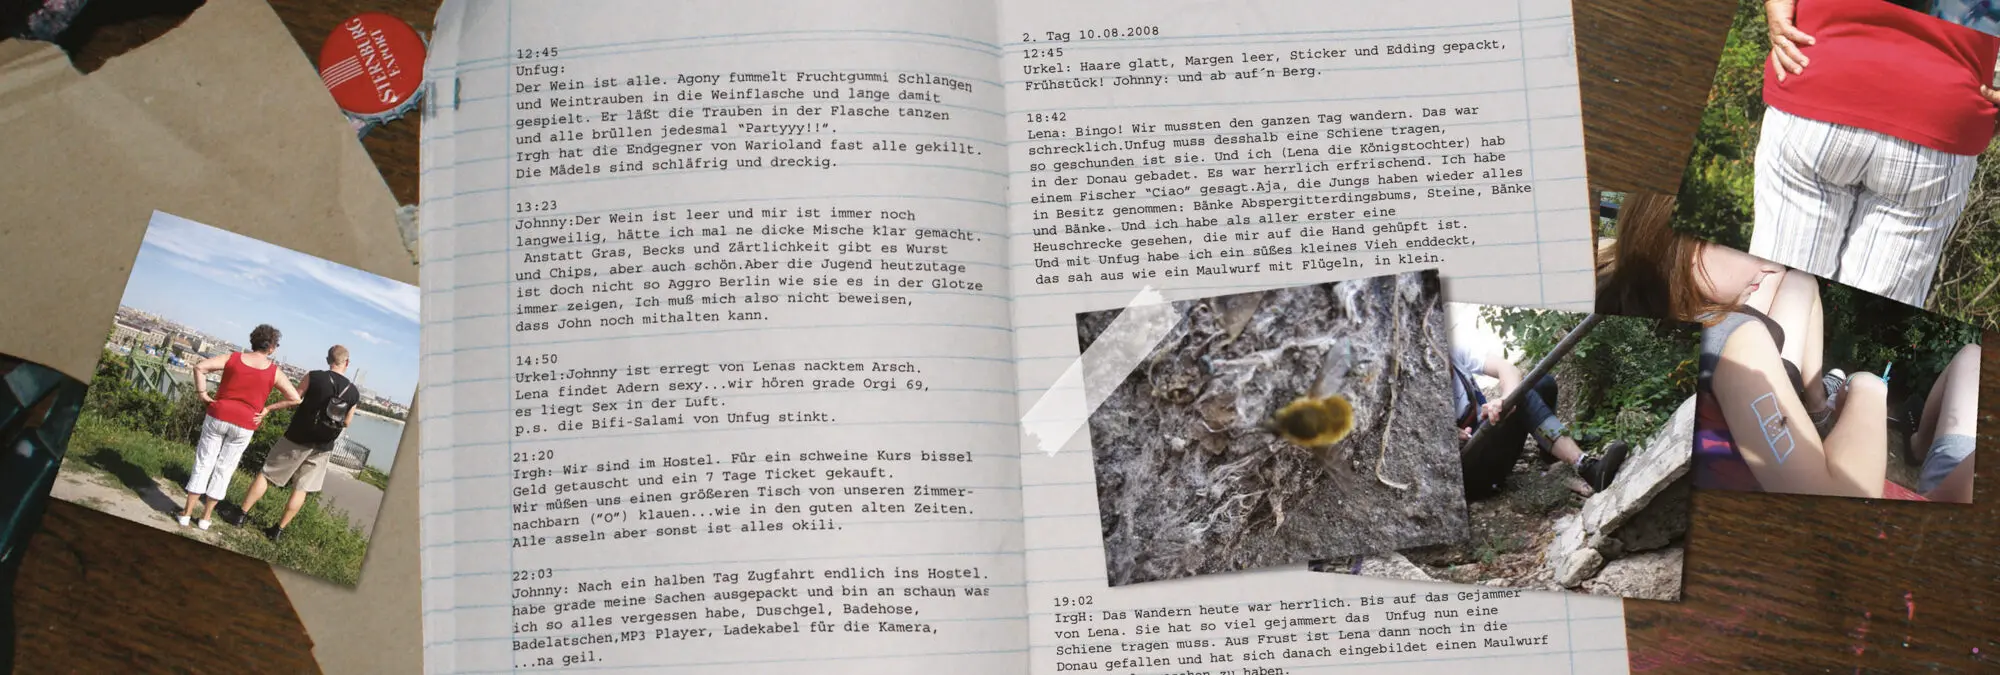 STERNBURG
EXPORT
12:45
Unfug:
Der Wein ist alle. Agony fummelt Fruchtgummi Schlangen
und Weintrauben in die Weinflasche und lange damit
gespielt. Er läßt die Trauben in der Flasche tanzen
und alle brüllen jedesmal “Partyyy!!”.
Irgh hat die Endgegner von Warioland fast alle gekillt.
Die Mädels sind schläfrig und dreckig.
13:23
Johnny:Der Wein ist leer und mir ist immer noch
langweilig, hätte ich mal ne dicke Mische klar gemacht.
Anstatt Gras, Becks und Zärtlichkeit gibt es Wurst
und Chips, aber auch schön.Aber die Jugend heutzutage
ist doch nicht so Aggro Berlin wie sie es in der Glotze
immer zeigen, Ich muß mich also nicht beweisen,
dass John noch mithalten kann.
14:50
Urkel:Johnny ist erregt von Lenas nacktem Arsch.
Lena findet Adern sexy...wir hören grade Orgi 69,
es liegt Sex in der Luft.
p.s. die Bifi-Salami von Unfug stinkt.
21:20
Irgh: Wir sind im Hostel. Für ein schweine Kurs bissel
Geld getauscht und ein 7 Tage Ticket gekauft.
Wir müßen uns einen größeren Tisch von unseren Zimmer-
nachbarn (“O”) klauen...wie in den guten alten Zeiten.
Alle asseln aber sonst ist alles okili.
22:03
Johnny: Nach ein halben Tag Zugfahrt endlich ins Hostel.
habe grade meine Sachen ausgepackt und bin an schaun was
ich so alles vergessen habe, Duschgel, Badehose,
Badelatschen,MP3 Player, Ladekabel für die Kamera,
...na geil.
2. Tag 10.08.2008
12:45
Urkel: Haare glatt, Margen leer, Sticker und Edding gepackt,
Frühstück! Johnny: und ab auf´n Berg.
18:42
Lena: Bingo! Wir mussten den ganzen Tag wandern. Das war
schrecklich.Unfug muss desshalb eine Schiene tragen,
so geschunden ist sie. Und ich (Lena die Königstochter) hab
in der Donau gebadet. Es war herrlich erfrischend. Ich habe
einem Fischer “Ciao” gesagt.Aja, die Jungs haben wieder alles
in Besitz genommen: Bänke Abspergitterdingsbums, Steine, Bänke
und Bänke. Und ich habe als aller erster eine
Heuschrecke gesehen, die mir auf die Hand gehüpft ist.
Und mit Unfug habe ich ein süßes kleines Vieh enddeckt,
das sah aus wie ein Maulwurf mit Flügeln, in klein.
19:02
IrgH: Das Wandern heute war herrlich. Bis auf das Gejammer
von Lena. Sie hat so viel gejammert das  Unfug nun eine
Schiene tragen muss. Aus Frust ist Lena dann noch in die
Donau gefallen und hat sich danach eingebildet einen Maulwurf
zu haben.